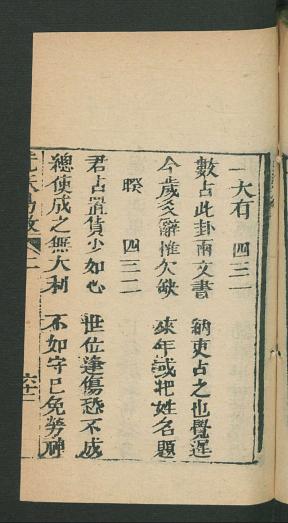 一大有 四三一
數占此卦兩文書 納吏占之也覺遲
今歲爻辭惟欠缺 來年或把姓名題
睽 四三二
君占置貨少如心 世位逢傷恐不成
總使成之無大利 不如守已免勞神